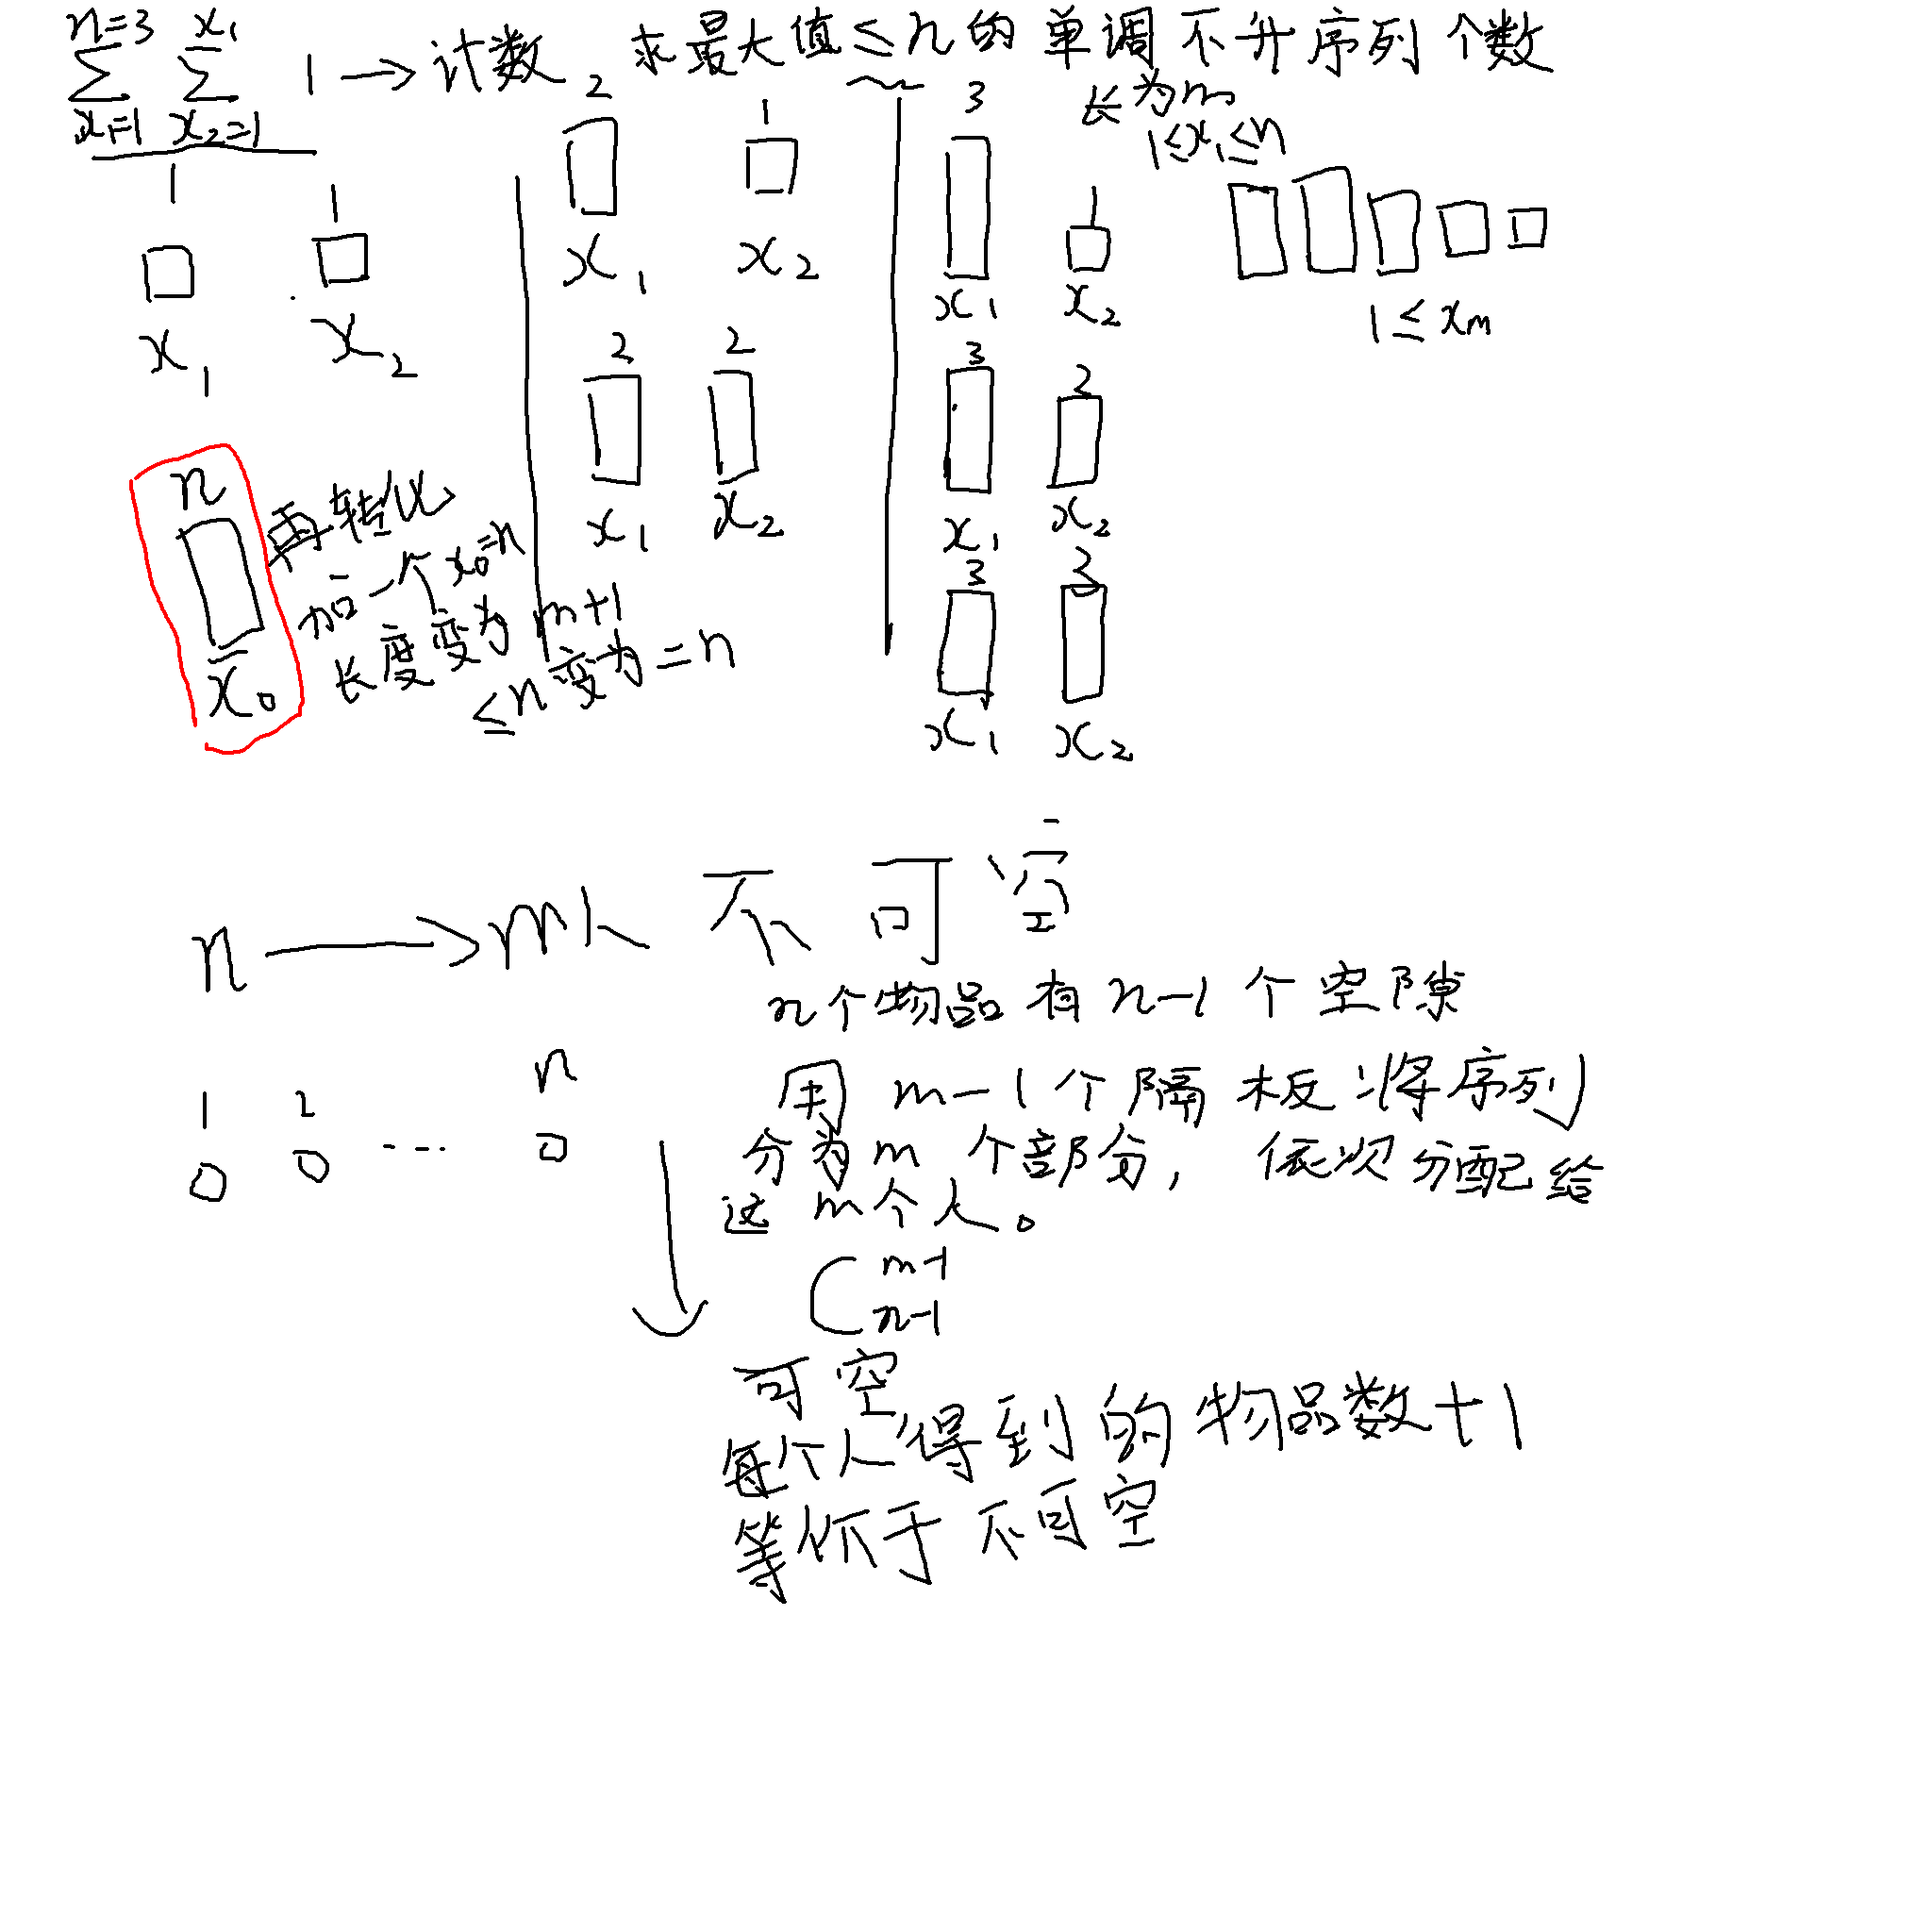 n=3 x₁
∑ ∑ 1 → 计数 求最大值≤n的单调不升序列个数
x₁=1 x₂=1
长为m
1≤x₁≤n
1 1
x₁ x₂
2 1
x₁ x₂
2 2
x₁ x₂
3 1
x₁ x₂
3 2
x₁ x₂
3 3
x₁ x₂
1≤xₘ
n
x₀
再转化
加一个x₀=n
长度变为m+1
≤n变为=n
n → m人 不可空
n个物品有n-1个空隙
1 2 ... n
用m-1个隔板将序列
分为m个部分，依次分配给
这m个人。
C m-1
n-1
可空
每个人得到的物品数+1
等价于不可空